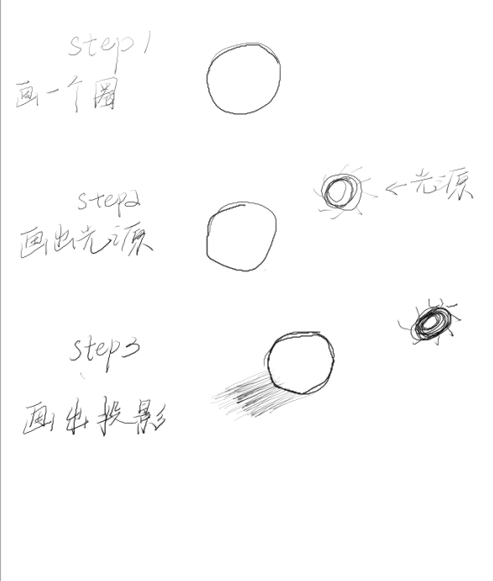 step1
画一个圈
←光源
step2
画出光源
step3
画出投影